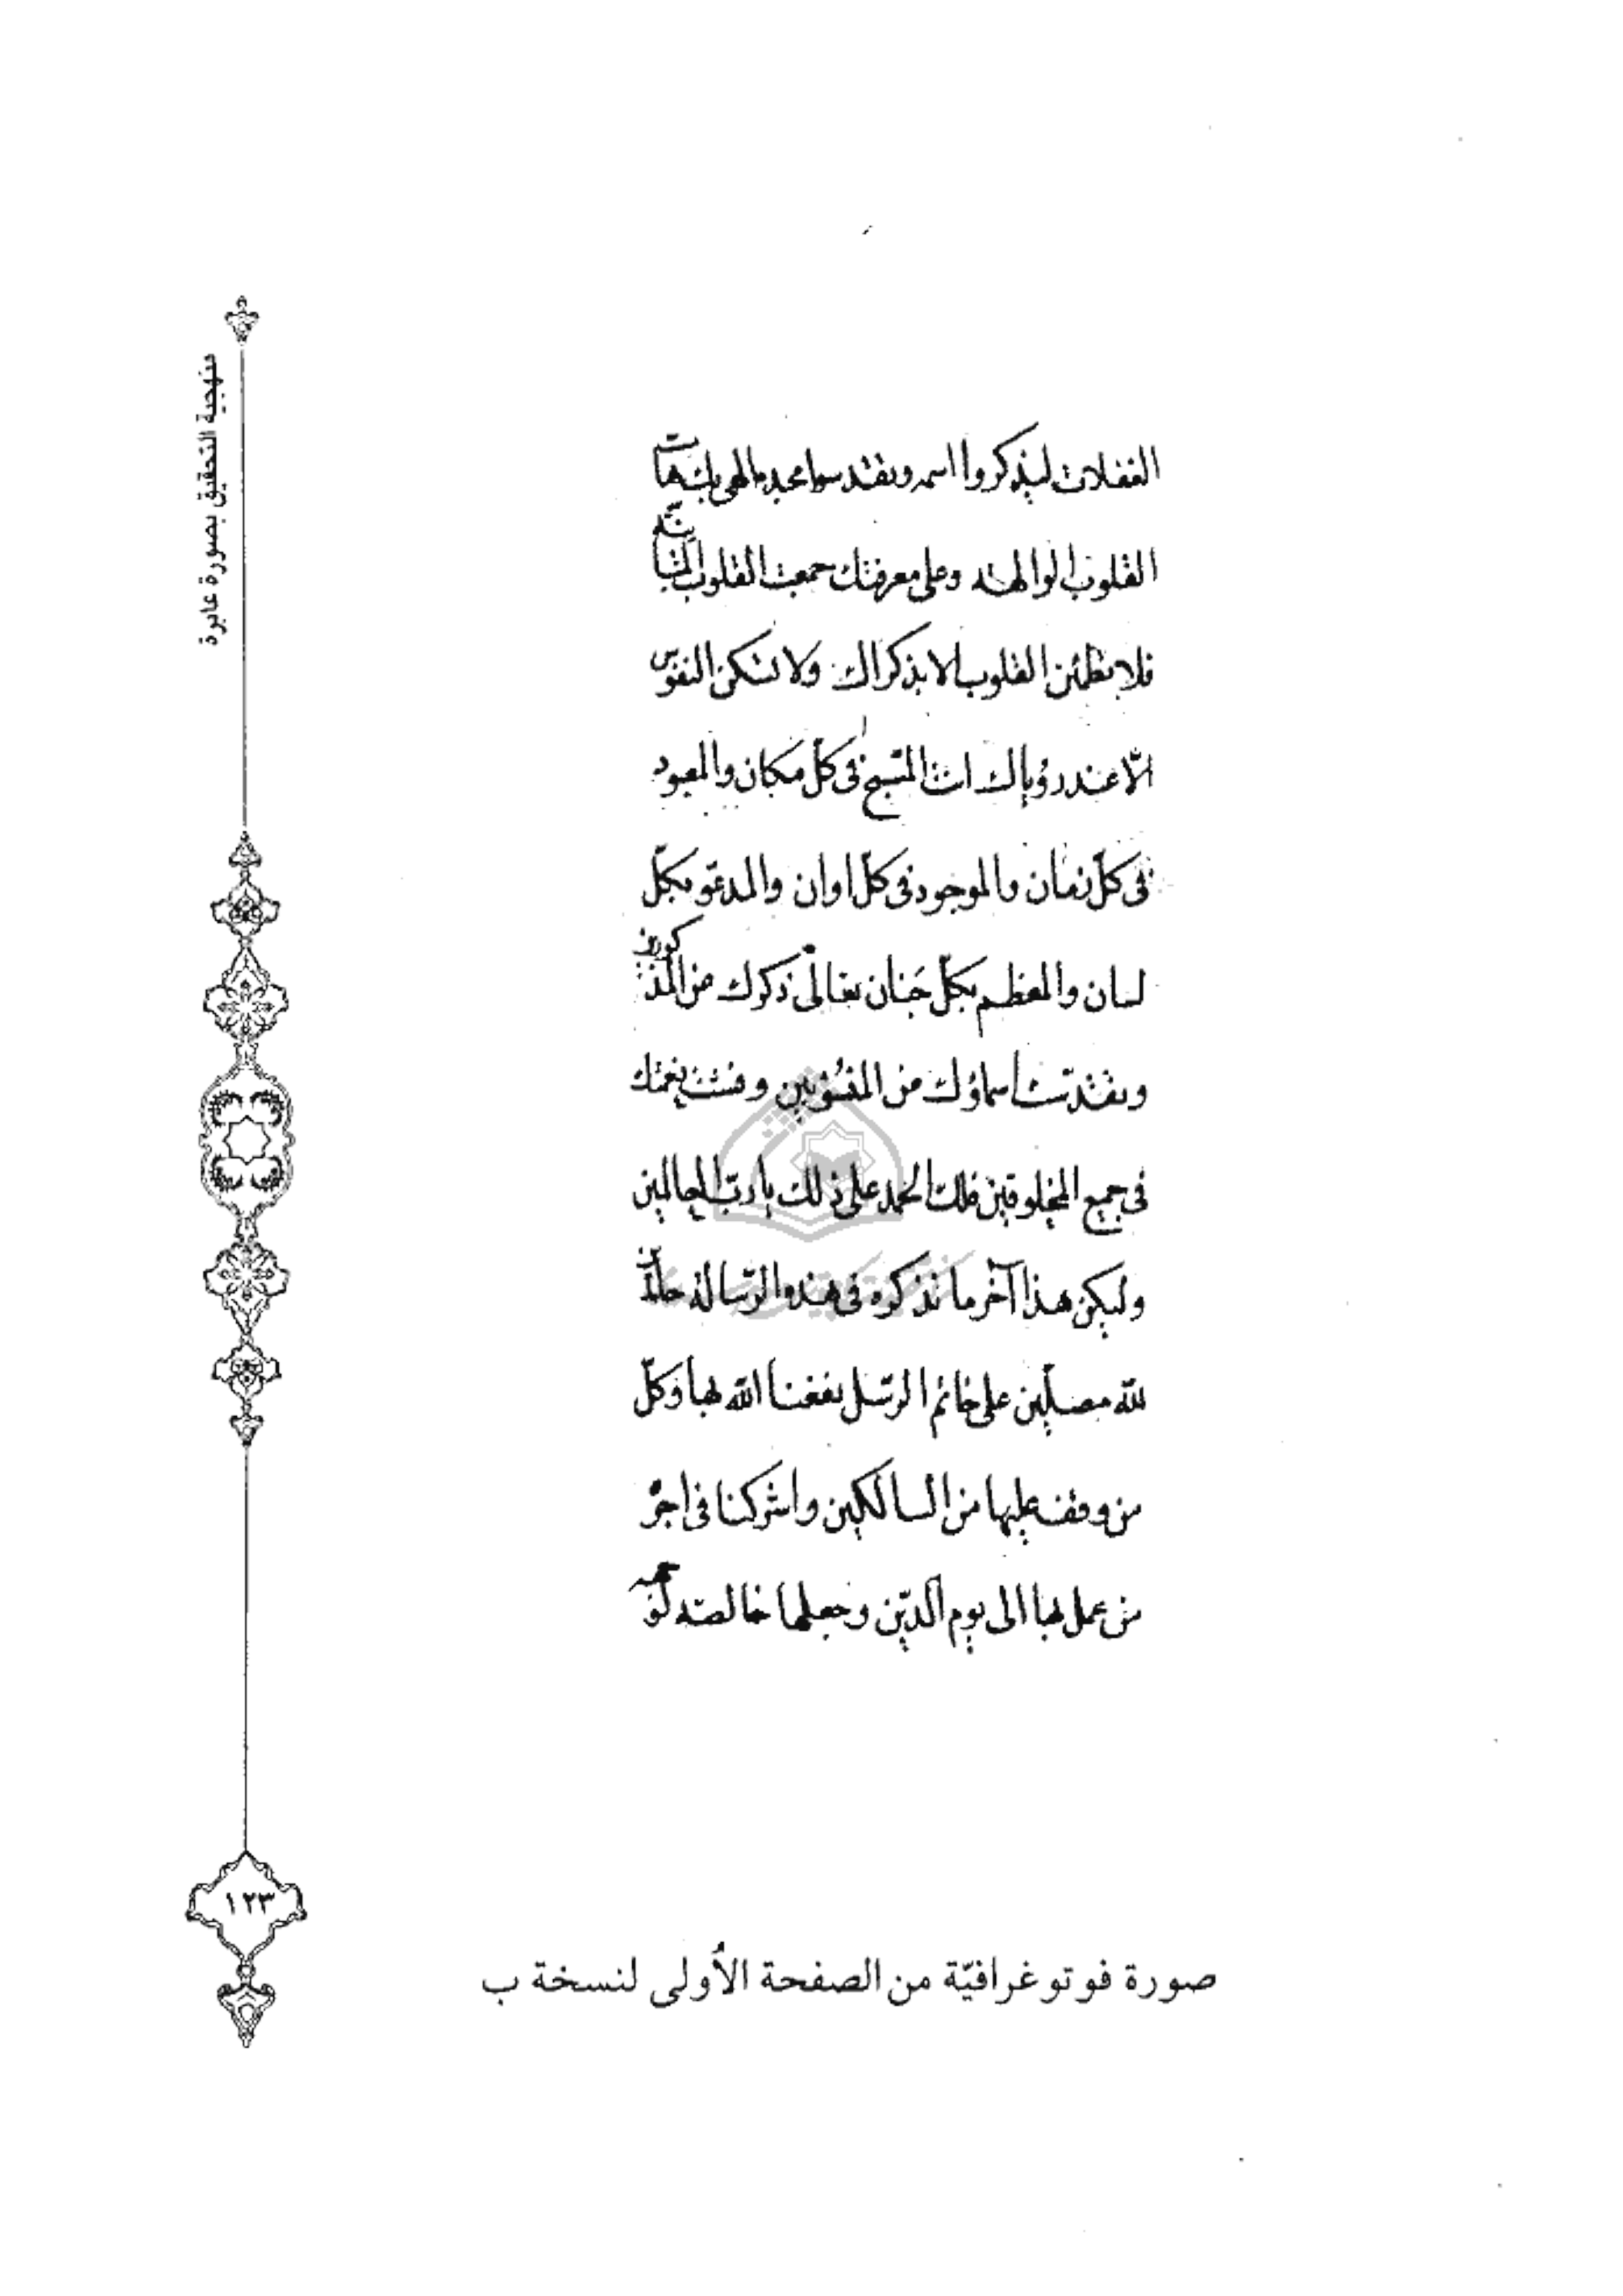 منهجية التحقيق بصورة عابرة
الغفلات ليذكروا اسمه وتقدسوا مجده الهى بك هامت
القلوب الوالهة وعلى معرفتك جمعت القلوب المتباينة
فلا تطمئن القلوب الا بذكراك ولا تسكن النفوس
الّا عند رؤياك انت المسبّح فى كلّ مكان والمعبود
فى كلّ زمان والموجود فى كلّ اوان والمدعوّ بكلّ
لسان والمعظم بكلّ جَنان تعالى ذكرك من المذكورين
وتقدّست اسماؤك من المنسوبين وفشت نعمتك
فى جميع المخلوقين فلك الحمد على ذلك يا ربّ العالمين
وليكن هذا آخر ما نذكره فى هذه الرّسالة حامدين
للّه مصلّين على خاتم الرّسل نفعنا اللّه بها وكلّ
من وقف عليها من السالكين واشركنا فى اجر
من عمل بها الى يوم الدّين وجعلها خالصة لوجهه
١٢٣
صورة فوتوغرافيّة من الصفحة الأولى لنسخة ب